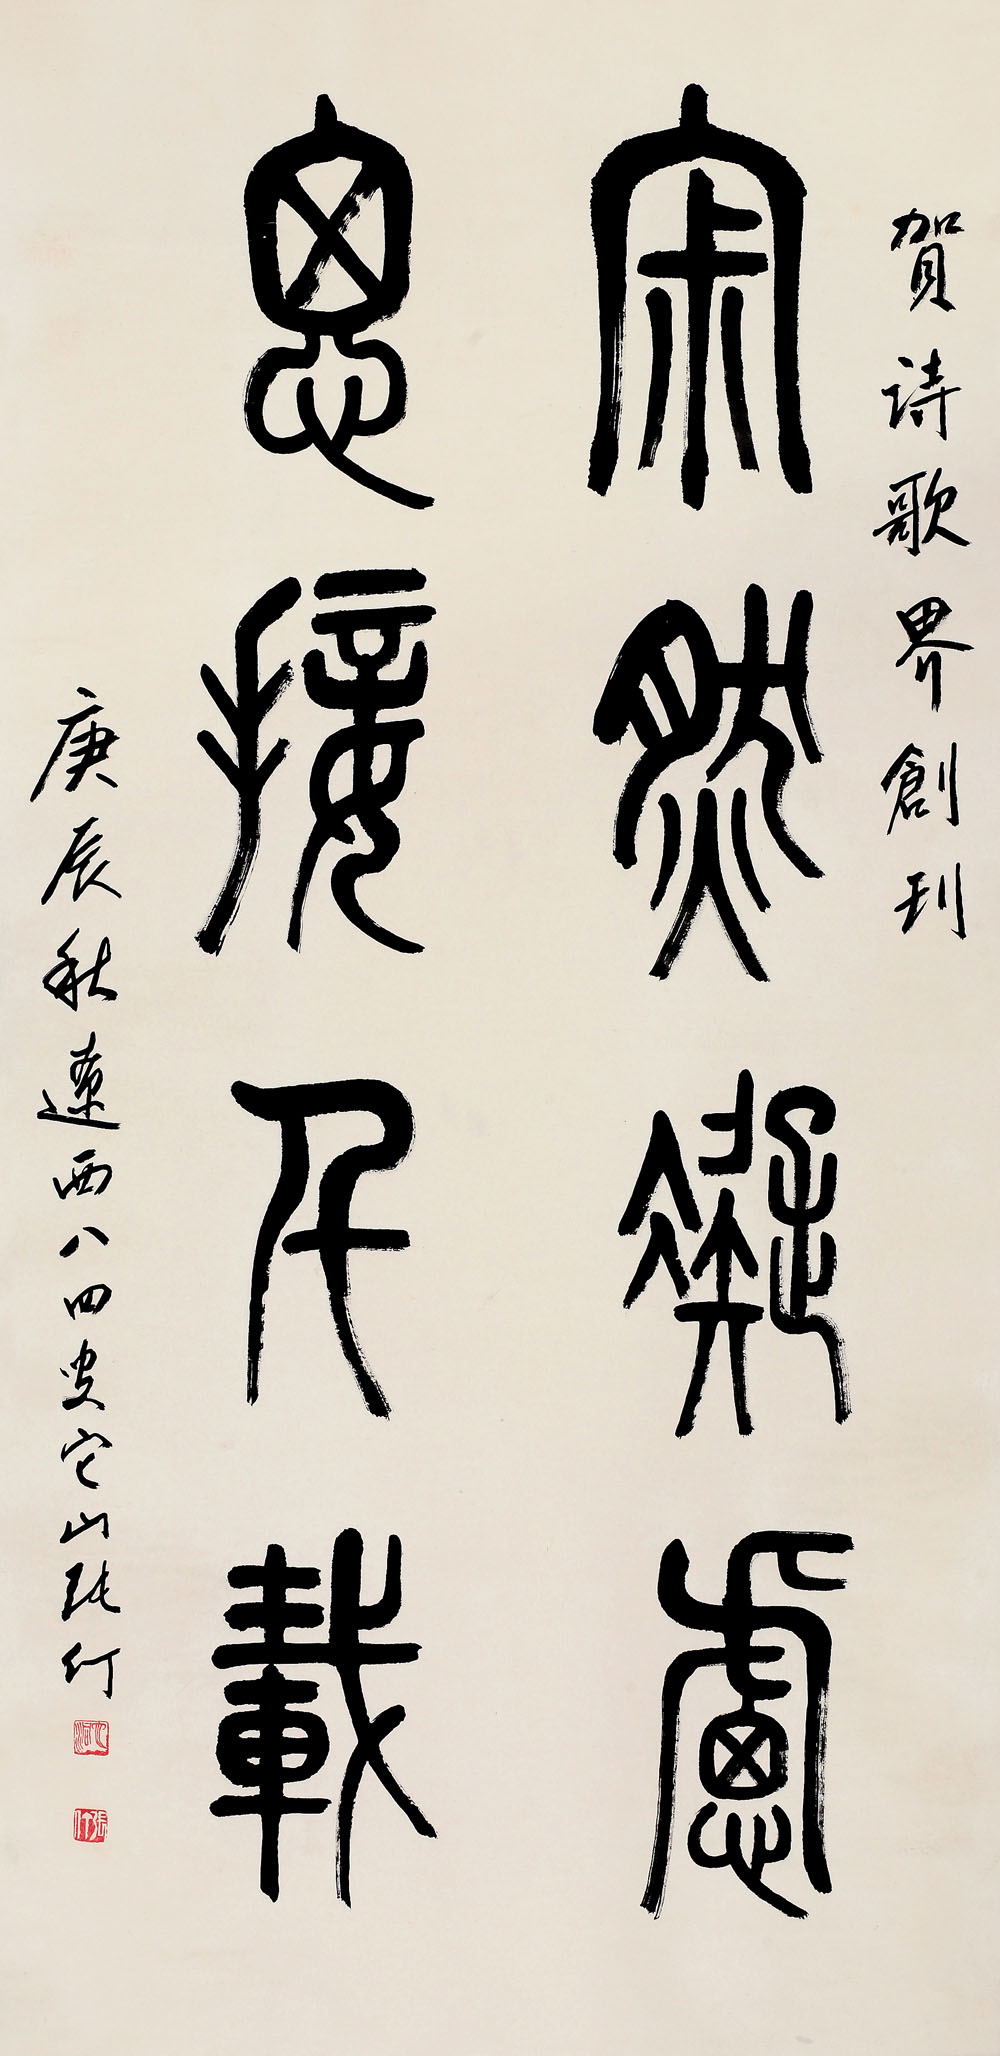 賀詩歌界創刊
寂然凝慮
思接千載
庚辰秋遼西八四叟它山張仃
張仃